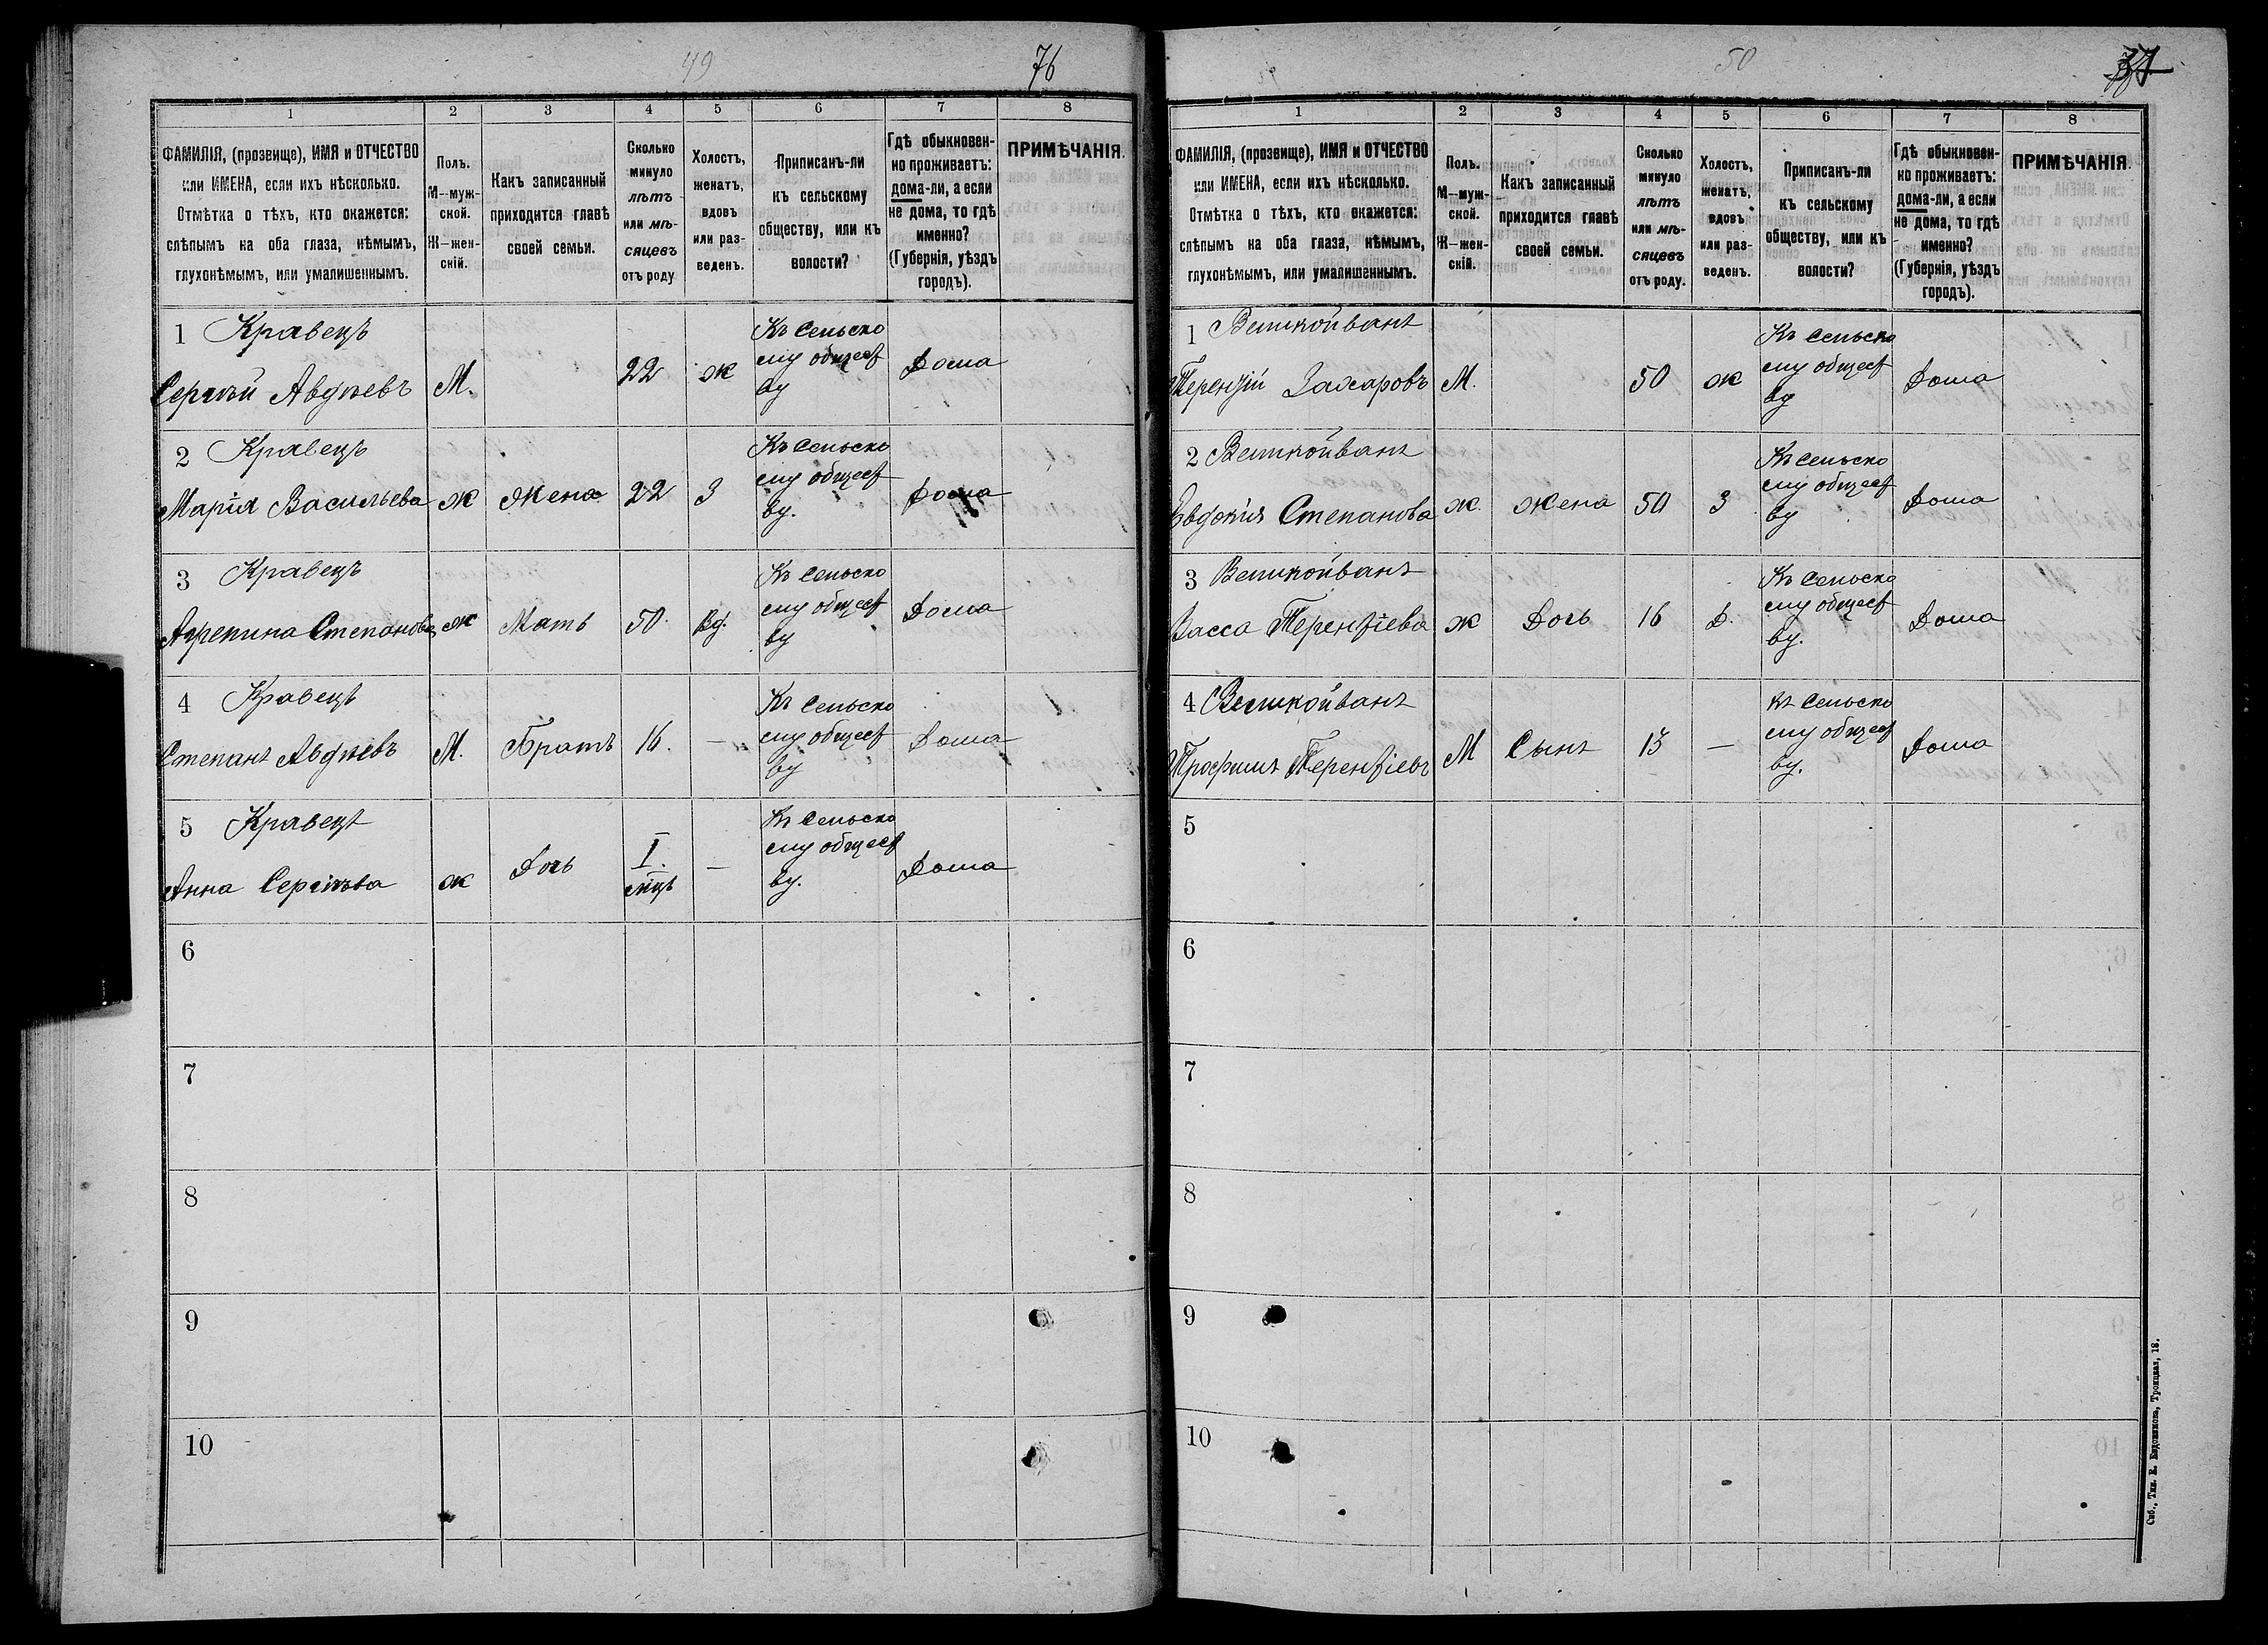 49
76
1
2
3
4
5
6
7
8
ФАМИЛІЯ, (прозвище), ИМЯ и ОТЧЕСТВО
или ИМЕНА, если ихъ нѣсколько.
Отмѣтка о тѣхъ, кто окажется:
слѣпымъ на оба глаза, нѣмымъ,
глухонѣмымъ, или умалишеннымъ.
Полъ.
М—муж-
ской.
Ж—жен-
скій.
Какъ записанный
приходится главѣ
своей семьи.
Сколько
минуло
лѣтъ
или мѣ-
сяцевъ
отъ роду
Холостъ,
женатъ,
вдовъ
или раз-
веденъ.
Приписанъ-ли
къ сельскому
обществу, или къ
волости?
Гдѣ обыкновен-
но проживаетъ:
дома-ли, а если
не дома, то гдѣ
именно?
(Губернія, уѣздъ
городъ).
ПРИМѢЧАНІЯ.
1 Кравецъ
Сергѣй Авдѣевъ
М.
22
ж
Къ Сельско
му общест
ву
Дома
2 Кравецъ
Марія Васильева
ж
Жена
22
З
Къ Сельско
му общест
ву.
Дома
3 Кравецъ
Агрепина Степанова
ж
Мать
50.
Вд.
Къ Сельско
му общест
ву
Дома
4 Кравецъ
Степанъ Авдѣевъ
М.
Братъ
16.
—
Къ Сельско
му общест
ву
Дома
5 Кравецъ
Анна Сергѣева
ж
Дочь
I.
мцъ
—
Къ Сельско
му общест
ву.
Дома
6
7
8
9
10
50
1
2
3
4
5
6
7
8
ФАМИЛІЯ, (прозвище), ИМЯ и ОТЧЕСТВО
или ИМЕНА, если ихъ нѣсколько.
Отмѣтка о тѣхъ, кто окажется:
слѣпымъ на оба глаза, нѣмымъ,
глухонѣмымъ, или умалишеннымъ.
Полъ.
М—муж-
ской.
Ж—жен-
скій.
Какъ записанный
приходится главѣ
своей семьи.
Сколько
минуло
лѣтъ
или мѣ-
сяцевъ
отъ роду.
Холостъ,
женатъ,
вдовъ
или раз-
веденъ.
Приписанъ-ли
къ сельскому
обществу, или къ
волости?
Гдѣ обыкновен-
но проживаетъ:
дома-ли, а если
не дома, то гдѣ
именно?
(Губернія, уѣздъ
городъ).
ПРИМѢЧАНІЯ
1 Великойванъ
Терентій Захаровъ
М.
50
ж
Къ Сельско
му общест
ву
Дома
2 Великойванъ
Евдокія Степанова
ж.
Жена
50
З
Къ Сельско
му общест
ву
Дома
3 Великойванъ
Васса Терентіева
ж
Дочь
16
Д.
Къ Сельско
му общест
ву.
Дома
4 Великойванъ
Трофимъ Терентіевъ
М
Сынъ
13
—
Къ Сельско
му общест
ву.
Дома
5
6
7
8
9
10